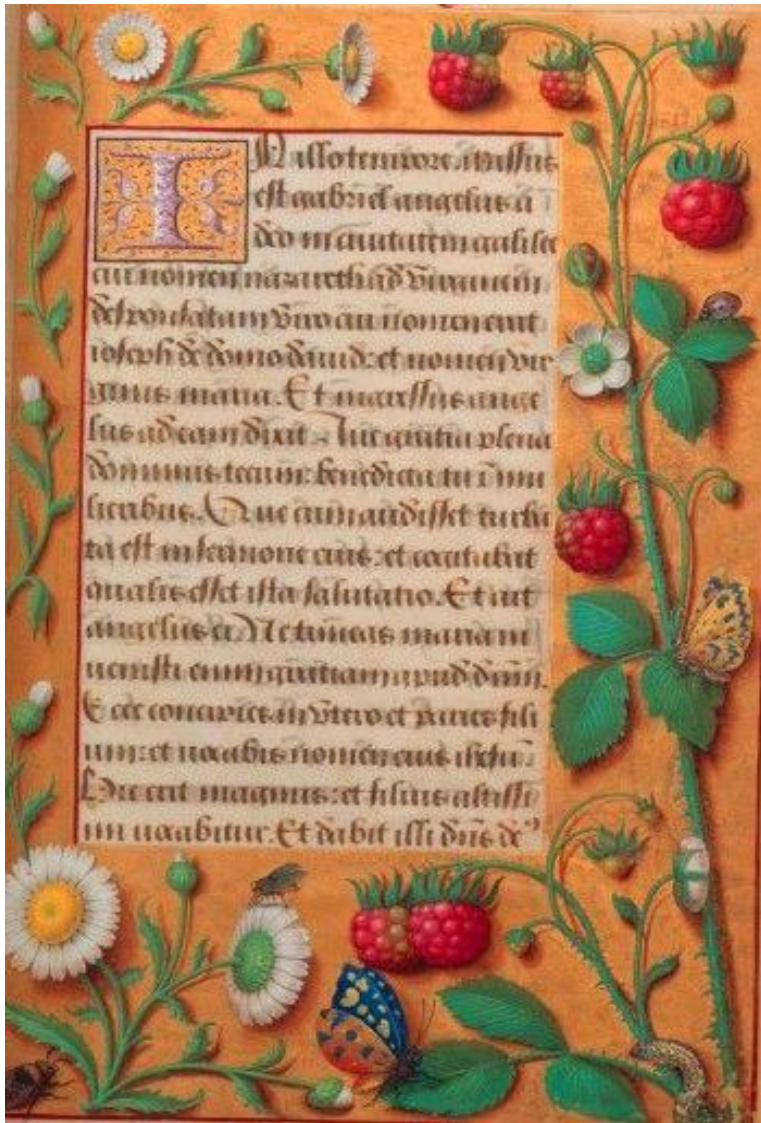 In illo tempore. Missus
est gabriel angelus a
deo in ciuitatem galilee
cui nomen nazareth ad virginem
desponsatam viro cui nomen erat
ioseph de domo dauid: et nomen vir
ginis maria. Et ingressus ange
lus ad eam dixit. Aue gratia plena
dominus tecum: benedicta tu ī mu
lieribus. Que cum audisset turba
ta est in sermone eius: et cogitabat
qualis esset ista salutatio. Et ait
angelus ei. Ne timeas maria in
uenisti enim gratiam apud dūm.
Ecce concipies in vtero et paries fili
um: et uocabis nomen eius
Hic erit magnus: et filius altissi
mi uocabitur. Et dabit illi dn̄s de